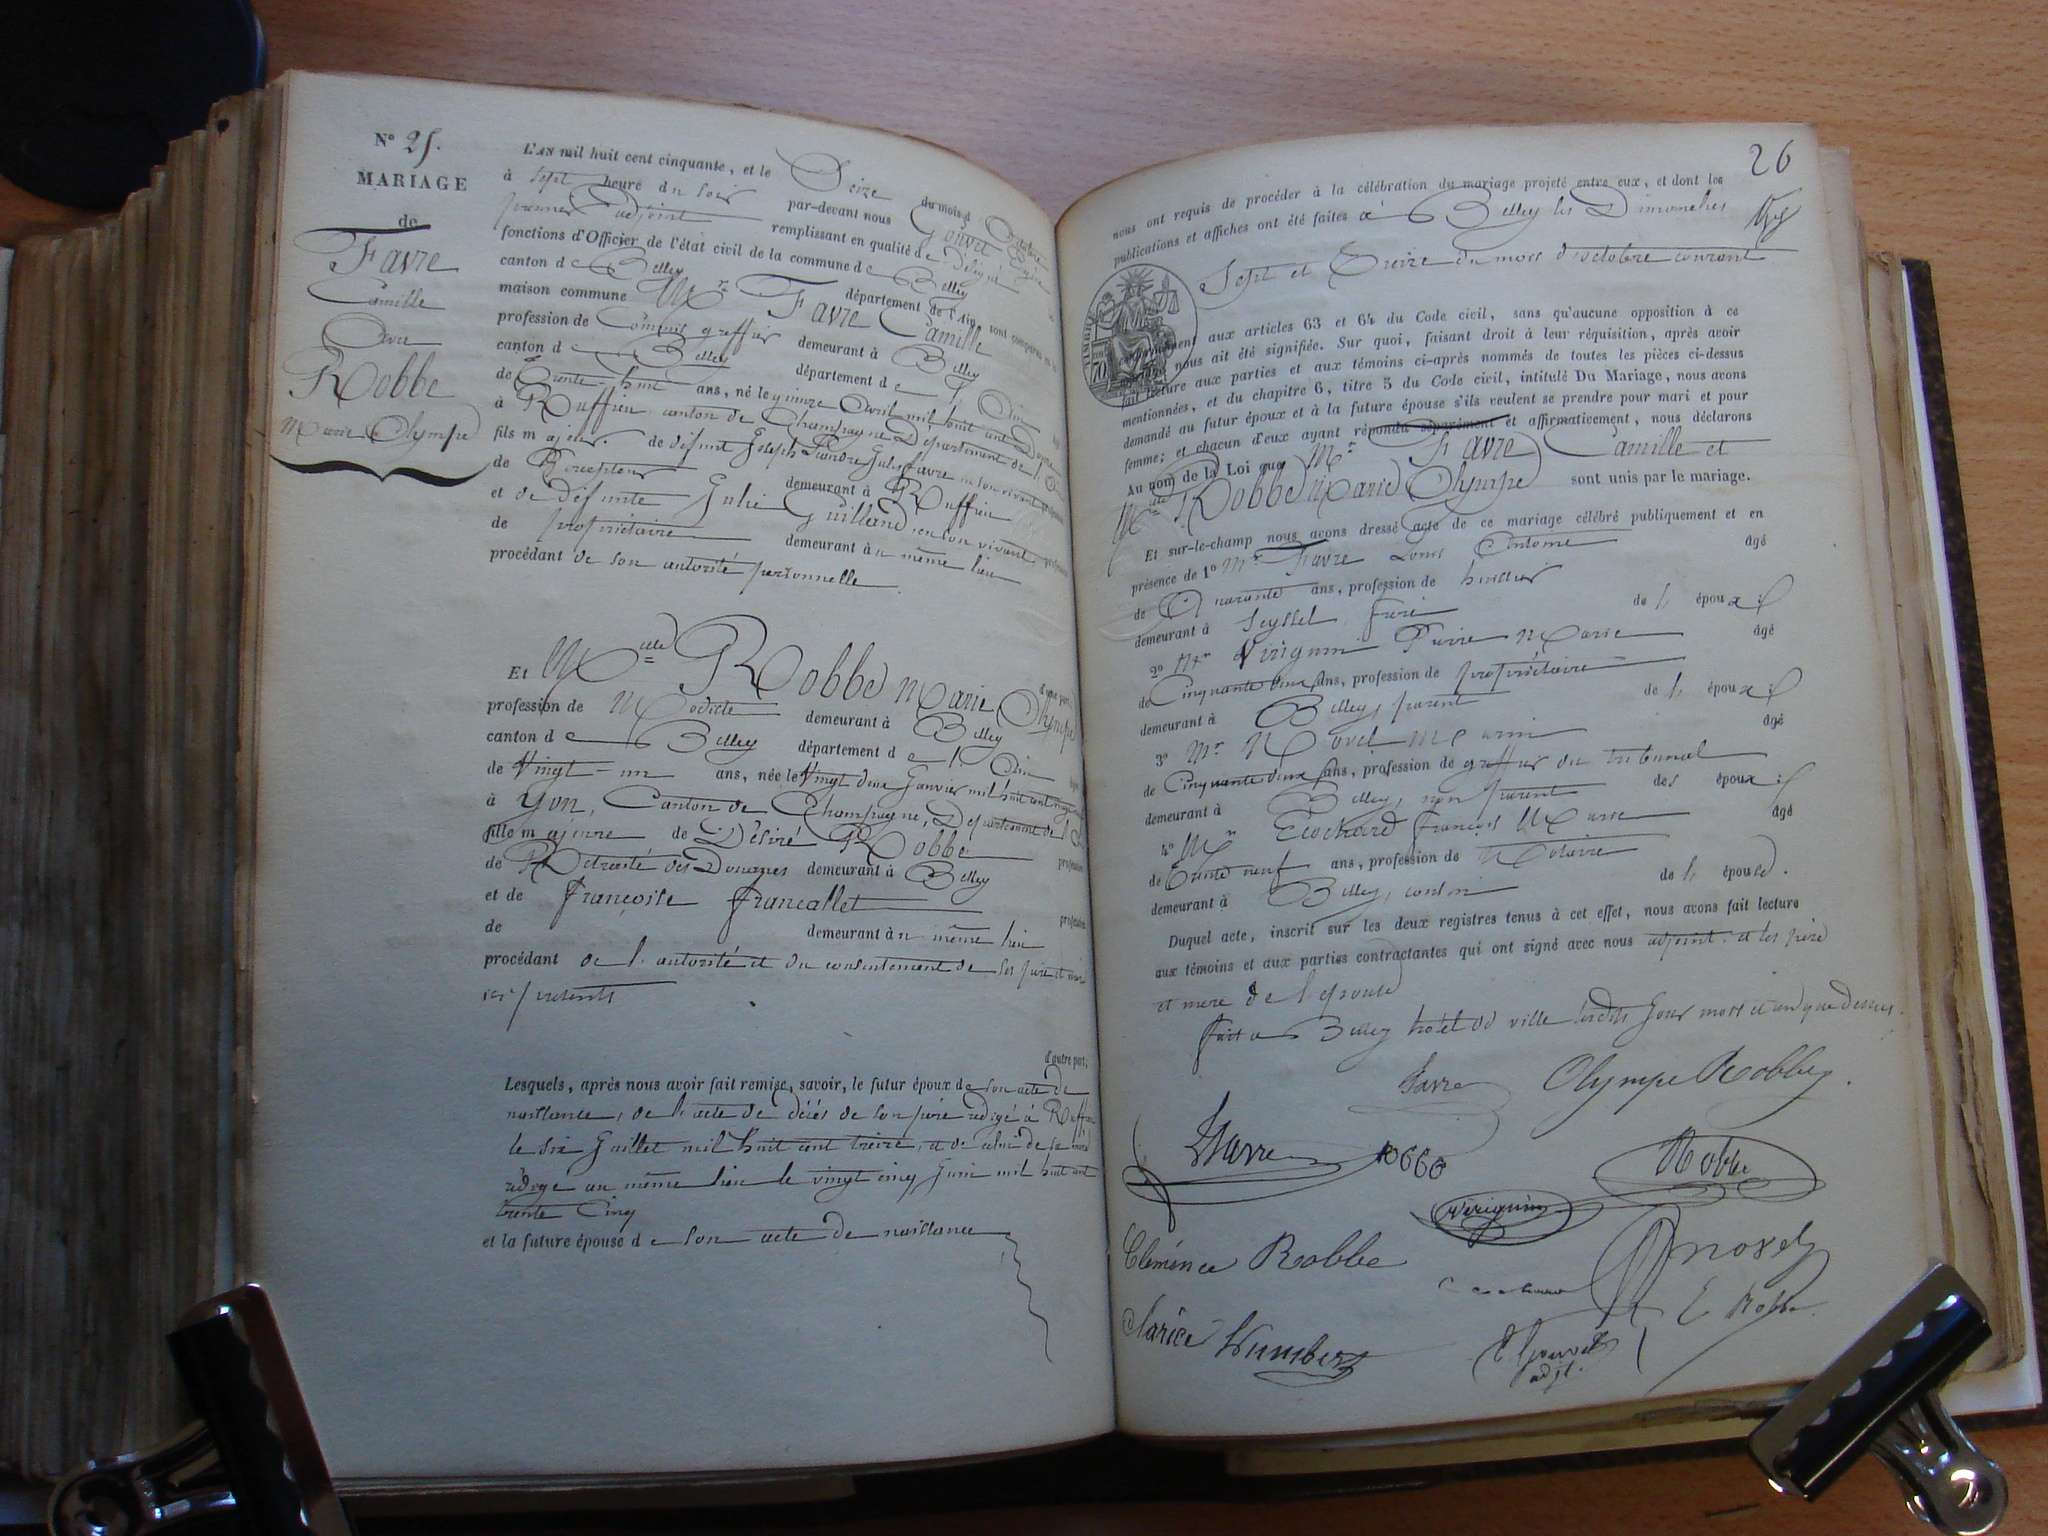 N° 25.
MARIAGE
de
Favre
Camille
Avec
Robbe
Marie Olympe
L'AN mil huit cent cinquante, et le Seize du mois d'Octobre
à sept heure du soir par-devant nous Gouvet Eugène
premier adjoint remplissant en qualité de délégué
fonctions d'Officier de l'état civil de la commune de Belley
canton de Belley département de l'Ain, sont comparus en la
maison commune Mr Favre Camille
profession de Commis greffier demeurant à Belley
canton de Belley département de l'Ain âgé
de Trente-huit ans, né le quinze Avril mil huit cent Douze
à Ruffieu canton de Champagne Département de l'Ain
fils majeur. de défunt Joseph Favre en son vivant profession
de Percepteur demeurant à Ruffieu
et de défunte Julie Guilland en son vivant profession
de propriétaire demeurant au même lieu
procédant de son autorité personnelle
d'une part,
Et Melle Robbe Marie Olympe
profession de Modiste demeurant à Belley
canton de Belley département de l'Ain âgée
de Vingt-un ans, née le Vingt deux Janvier mil huit cent vingt
à Yon, Canton de Champagne, Département de l'Ain
fille majeure de Désiré Robbe profession
de Retraité des Douanes demeurant à Belley
et de Françoise Francallet profession
de demeurant au même lieu
procédant de l'autorité et du consentement de ses père et mère
ici présents
d'autre part,
Lesquels, après nous avoir fait remise, savoir, le futur époux de son acte de
naissance, de l'acte de décès de son père rédigé à Ruffieu
le six Juillet mil huit cent treize, et de celui de sa mère
rédigé au même lieu le vingt cinq Juin mil huit cent
trente Cinq
et la future épouse de son acte de naissance
26
nous ont requis de procéder à la célébration du mariage projeté entre eux, et dont les
publications et affiches ont été faites à Belley les Dimanches
Sept et Treize du mois d'octobre courant
TIMBRE
70
conformément aux articles 63 et 64 du Code civil, sans qu'aucune opposition à ce
mariage nous ait été signifiée. Sur quoi, faisant droit à leur réquisition, après avoir
fait lecture aux parties et aux témoins ci-après nommés de toutes les pièces ci-dessus
mentionnées, et du chapitre 6, titre 5 du Code civil, intitulé Du Mariage, nous avons
demandé au futur époux et à la future épouse s'ils veulent se prendre pour mari et pour
femme; et chacun d'eux ayant répondu séparément et affirmativement, nous déclarons
Au nom de la Loi que Mr Favre Camille et
Melle Robbe Marie Olympe sont unis par le mariage.
Et sur-le-champ nous avons dressé acte de ce mariage célébré publiquement et en
présence de 1° Mr Favre Louis Antoine âgé
de Quarante ans, profession de huissier
demeurant à Seyssel frère de l'époux;
2° Mr Vérignin Pierre Marie âgé
de Cinquante deux ans, profession de propriétaire
demeurant à Belley, parent de l'époux;
3° Mr Morel Marin âgé
de Cinquante deux ans, profession de greffier du tribunal
demeurant à Belley, non parent des époux;
4° Mr Ecochard François Marie âgé
de Trente neuf ans, profession de Notaire
demeurant à Belley, cousin de l'épouse.
Duquel acte, inscrit sur les deux registres tenus à cet effet, nous avons fait lecture
aux témoins et aux parties contractantes qui ont signé avec nous adjoint, et les père
et mère de l'épouse
fait à Belley hôtel de ville lesdits Jour mois et an que dessus.
Favre Olympe Robbe
Favre Robbe Robbe
Vérignin
Clémence Robbe Morel
E Robbe
Clarice Humbert E Gouvet
adjt.